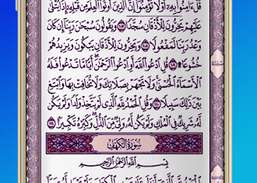 قُلْ ءَامِنُوا۟ بِهِۦٓ أَوْ لَا تُؤْمِنُوٓا۟ إِنَّ ٱلَّذِينَ أُوتُوا۟ ٱلْعِلْمَ مِن قَبْلِهِۦٓ إِذَا يُتْلَىٰ
عَلَيْهِمْ يَخِرُّونَ لِلْأَذْقَانِ سُجَّدًا ١٠٧ وَيَقُولُونَ سُبْحَٰنَ رَبِّنَآ إِن كَانَ
وَعْدُ رَبِّنَا لَمَفْعُولًا ١٠٨ وَيَخِرُّونَ لِلْأَذْقَانِ يَبْكُونَ وَيَزِيدُهُمْ
خُشُوعًا ١٠٩ قُلِ ٱدْعُوا۟ ٱللَّهَ أَوِ ٱدْعُوا۟ ٱلرَّحْمَٰنَ أَيًّا مَّا تَدْعُوا۟ فَلَهُ
ٱلْأَسْمَآءُ ٱلْحُسْنَىٰ وَلَا تَجْهَرْ بِصَلَاتِكَ وَلَا تُخَافِتْ بِهَا وَٱبْتَغِ
بَيْنَ ذَٰلِكَ سَبِيلًا ١١٠ وَقُلِ ٱلْحَمْدُ لِلَّهِ ٱلَّذِى لَمْ يَتَّخِذْ وَلَدًا وَلَمْ يَكُن
لَّهُۥ شَرِيكٌ فِى ٱلْمُلْكِ وَلَمْ يَكُن لَّهُۥ وَلِىٌّ مِّنَ ٱلذُّلِّ وَكَبِّرْهُ تَكْبِيرًا ١١١
سُورَةُ الكَهْفِ
بِسْمِ ٱللَّهِ ٱلرَّحْمَٰنِ ٱلرَّحِيمِ